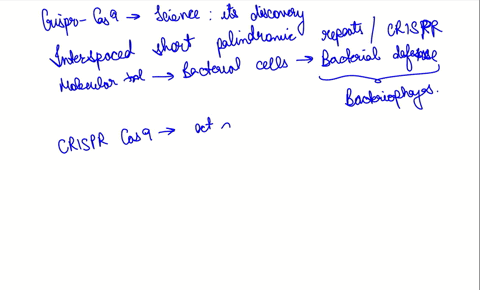 Crispr-Cas9 → Science : its discovery
Interspaced short palindromic repeats / CRISPR
Molecular tool → Bacterial cells → Bacterial defense
Bacteriophages.
CRISPR Cas9 → act